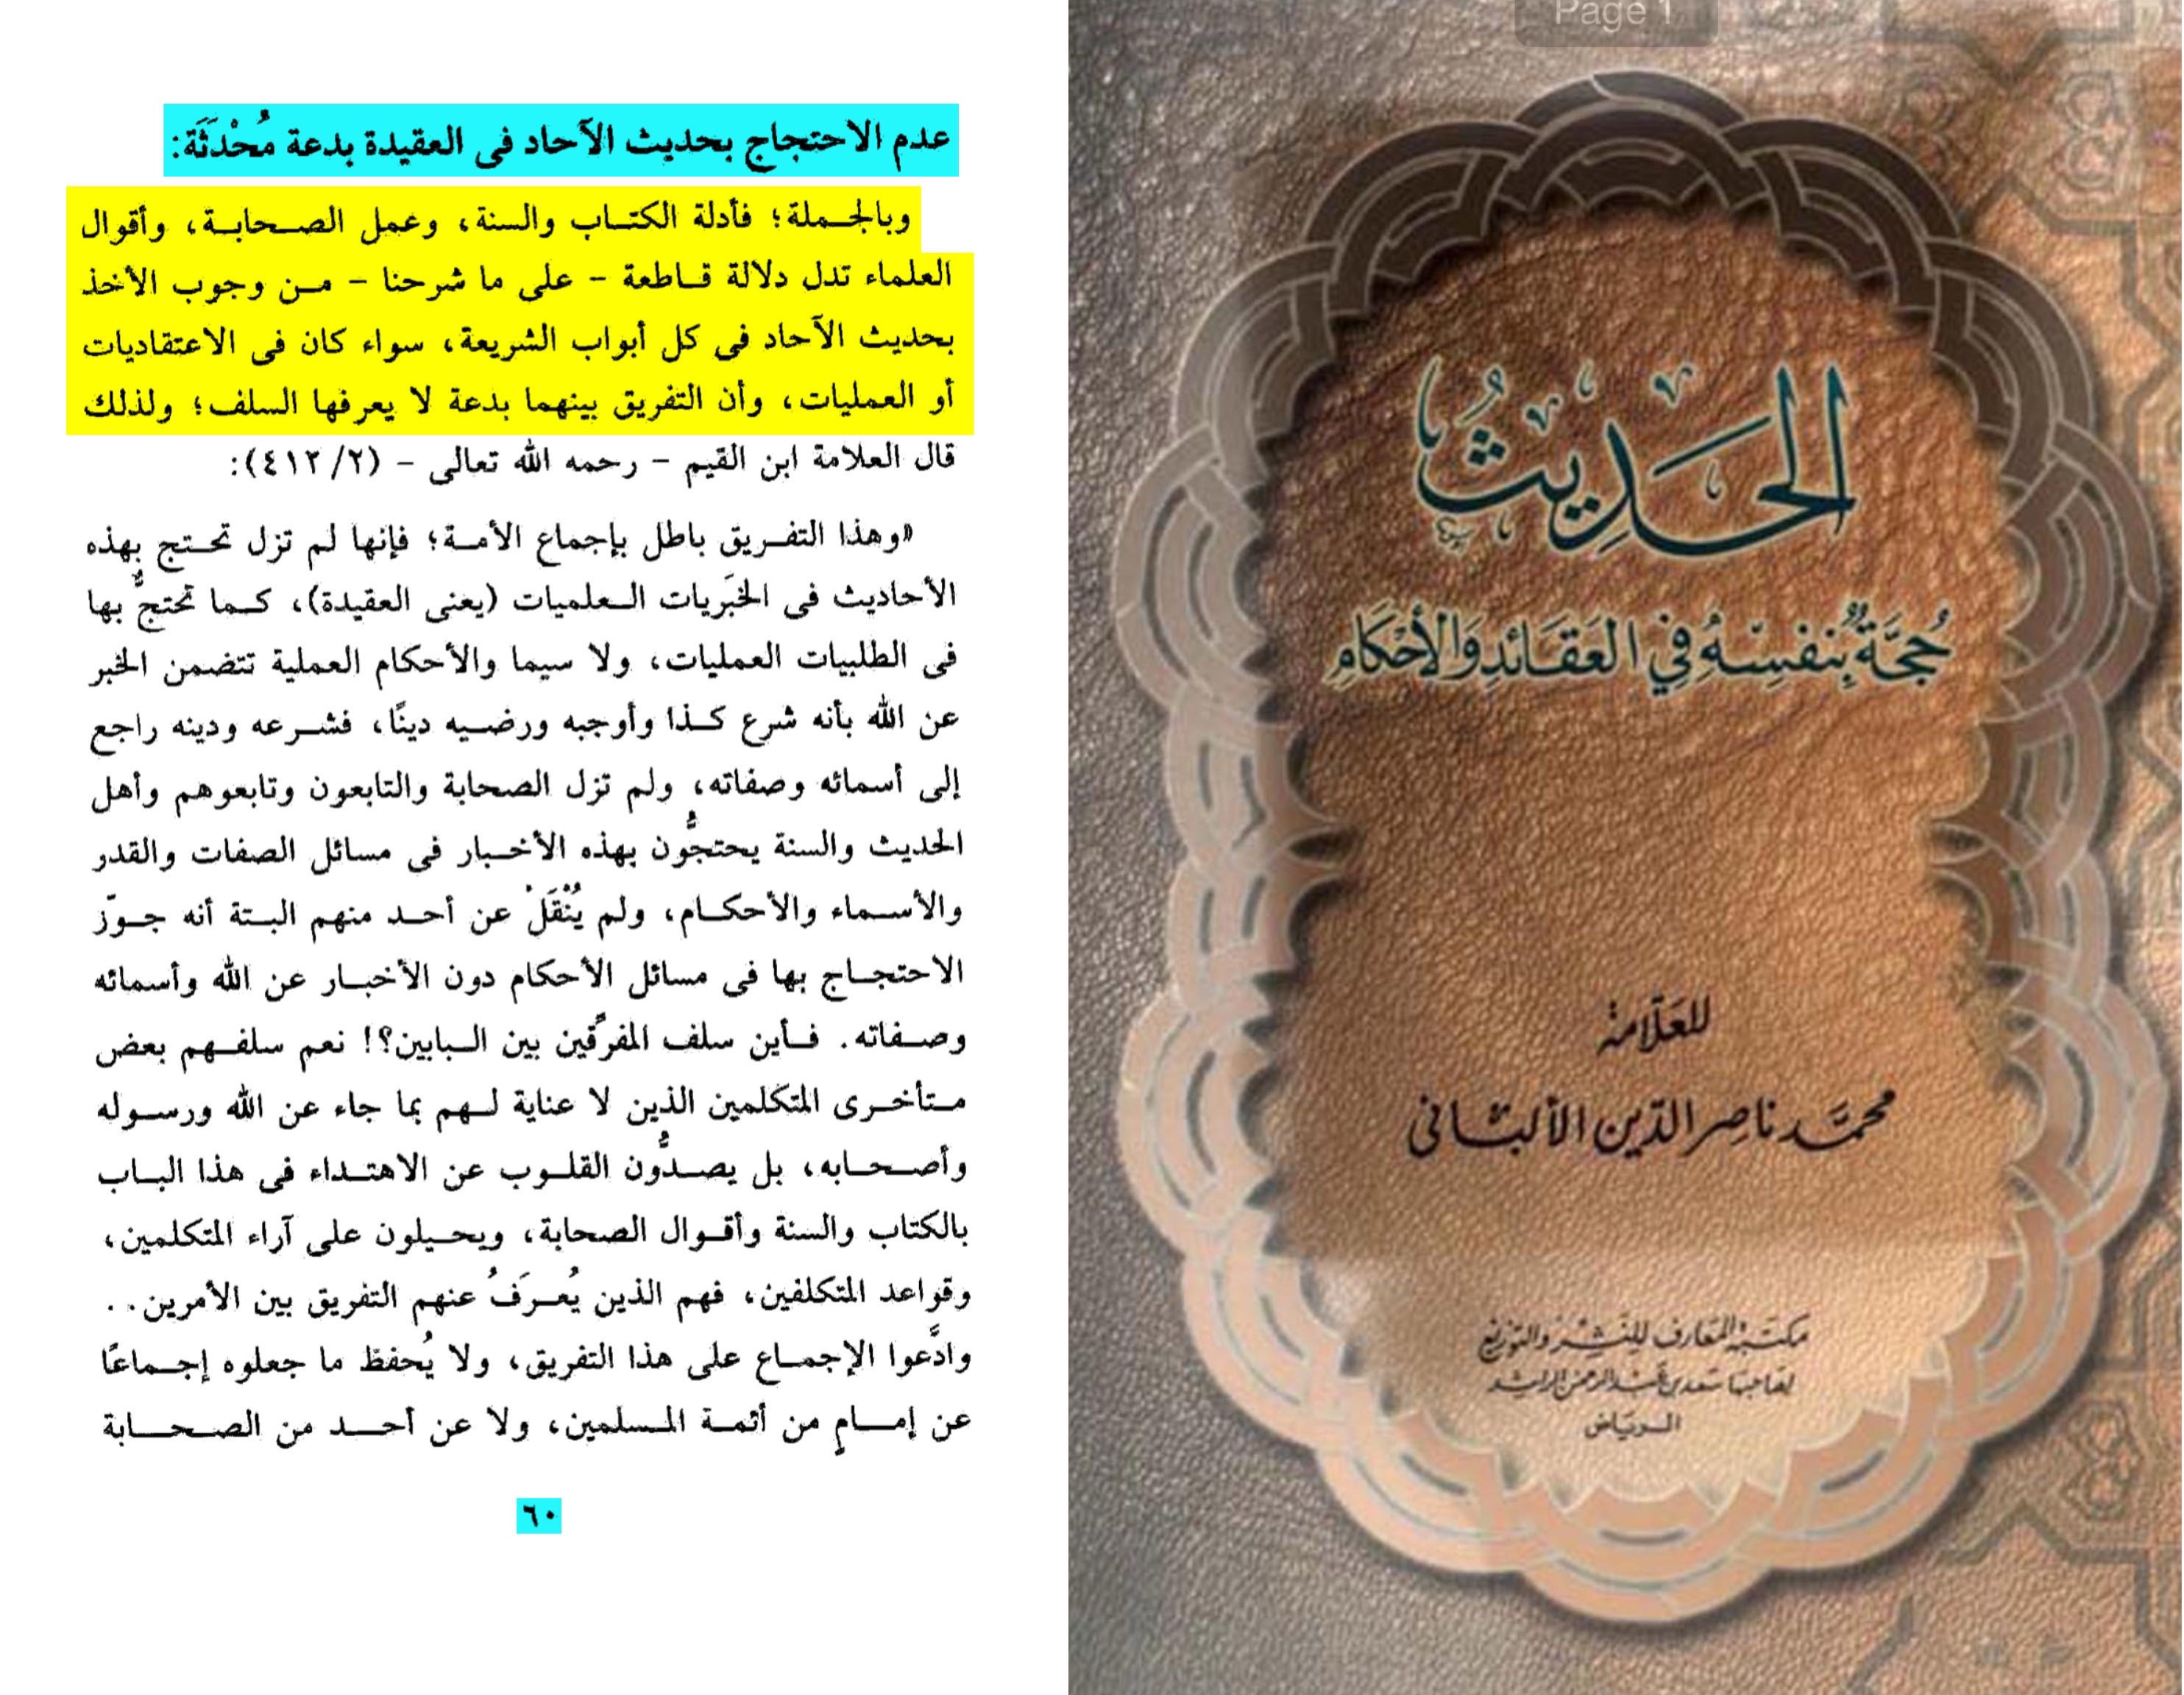 عدم الاحتجاج بحديث الآحاد فى العقيدة بدعة مُحْدَثَة:
وبالجملة؛ فأدلة الكتاب والسنة، وعمل الصحابة، وأقوال
العلماء تدل دلالة قاطعة - على ما شرحنا - من وجوب الأخذ
بحديث الآحاد فى كل أبواب الشريعة، سواء كان فى الاعتقاديات
أو العمليات، وأن التفريق بينهما بدعة لا يعرفها السلف؛ ولذلك
قال العلامة ابن القيم - رحمه الله تعالى - (٢/ ٤١٢):
«وهذا التفريق باطل بإجماع الأمة؛ فإنها لم تزل تحتج بهذه
الأحاديث فى الخبَريات العلميات (يعنى العقيدة)، كما تحتجُّ بها
فى الطلبيات العمليات، ولا سيما والأحكام العملية تتضمن الخبر
عن الله بأنه شرع كذا وأوجبه ورضيه دينًا، فشرعه ودينه راجع
إلى أسمائه وصفاته، ولم تزل الصحابة والتابعون وتابعوهم وأهل
الحديث والسنة يحتجُّون بهذه الأخبار فى مسائل الصفات والقدر
والأسماء والأحكام، ولم يُنْقَلْ عن أحد منهم البتة أنه جوّز
الاحتجاج بها فى مسائل الأحكام دون الأخبار عن الله وأسمائه
وصفاته. فأين سلف المفرِّقين بين البابين؟! نعم سلفهم بعض
متأخرى المتكلمين الذين لا عناية لهم بما جاء عن الله ورسوله
وأصحابه، بل يصدُّون القلوب عن الاهتداء فى هذا الباب
بالكتاب والسنة وأقوال الصحابة، ويحيلون على آراء المتكلمين،
وقواعد المتكلفين، فهم الذين يُعرَفُ عنهم التفريق بين الأمرين..
وادَّعوا الإجماع على هذا التفريق، ولا يُحفظ ما جعلوه إجماعًا
عن إمامٍ من أئمة المسلمين، ولا عن أحد من الصحابة
٦٠
Page 1
الحَدِيثُ
حُجَّةٌ بِنَفْسِهِ فِي العَقَائِدِ وَالأَحْكَامِ
للعَلّامة
محمَّد ناصِر الدّين الألبَاني
مكتَبة المَعارف للنَشْر والتوزيع
لصَاحبها سَعد بن عَبد الرحمن الراشد
الريَاض